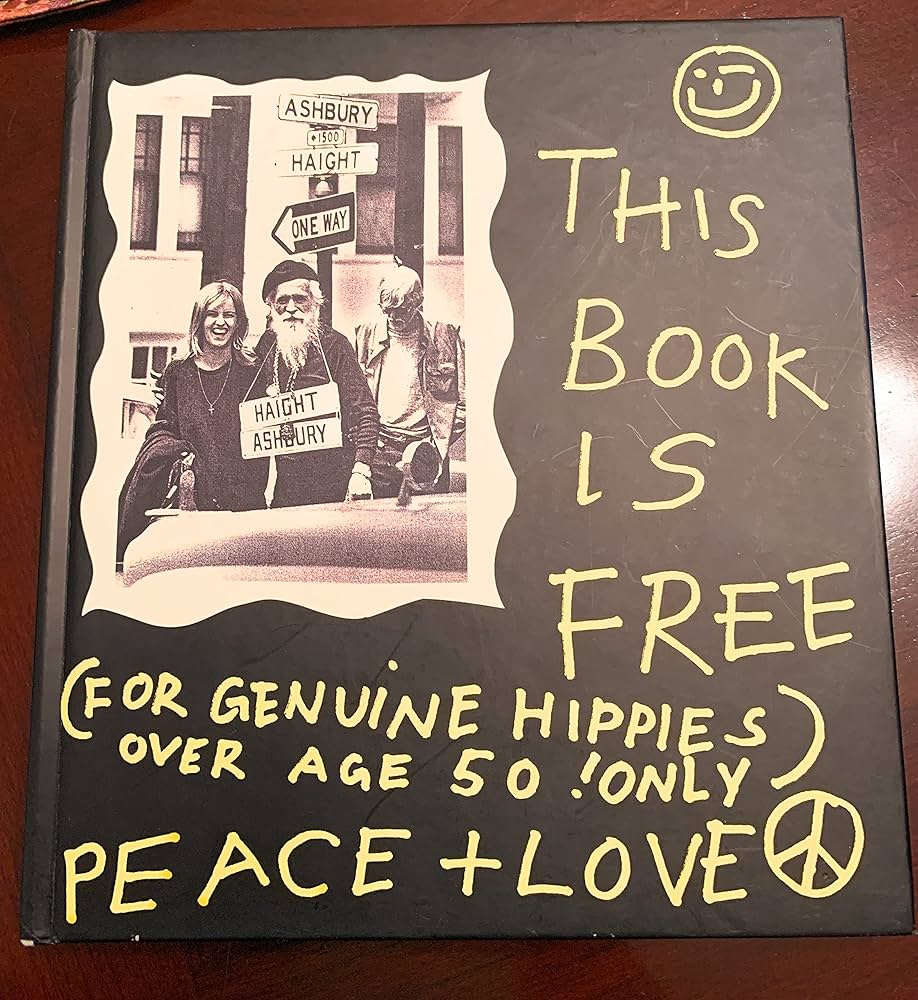 ASHBURY
1500
HAIGHT
ONE WAY
HAIGHT
ASHBURY
THIS
BOOK
IS
FREE
(FOR GENUINE HIPPIES
OVER AGE 50 !ONLY)
PEACE + LOVE